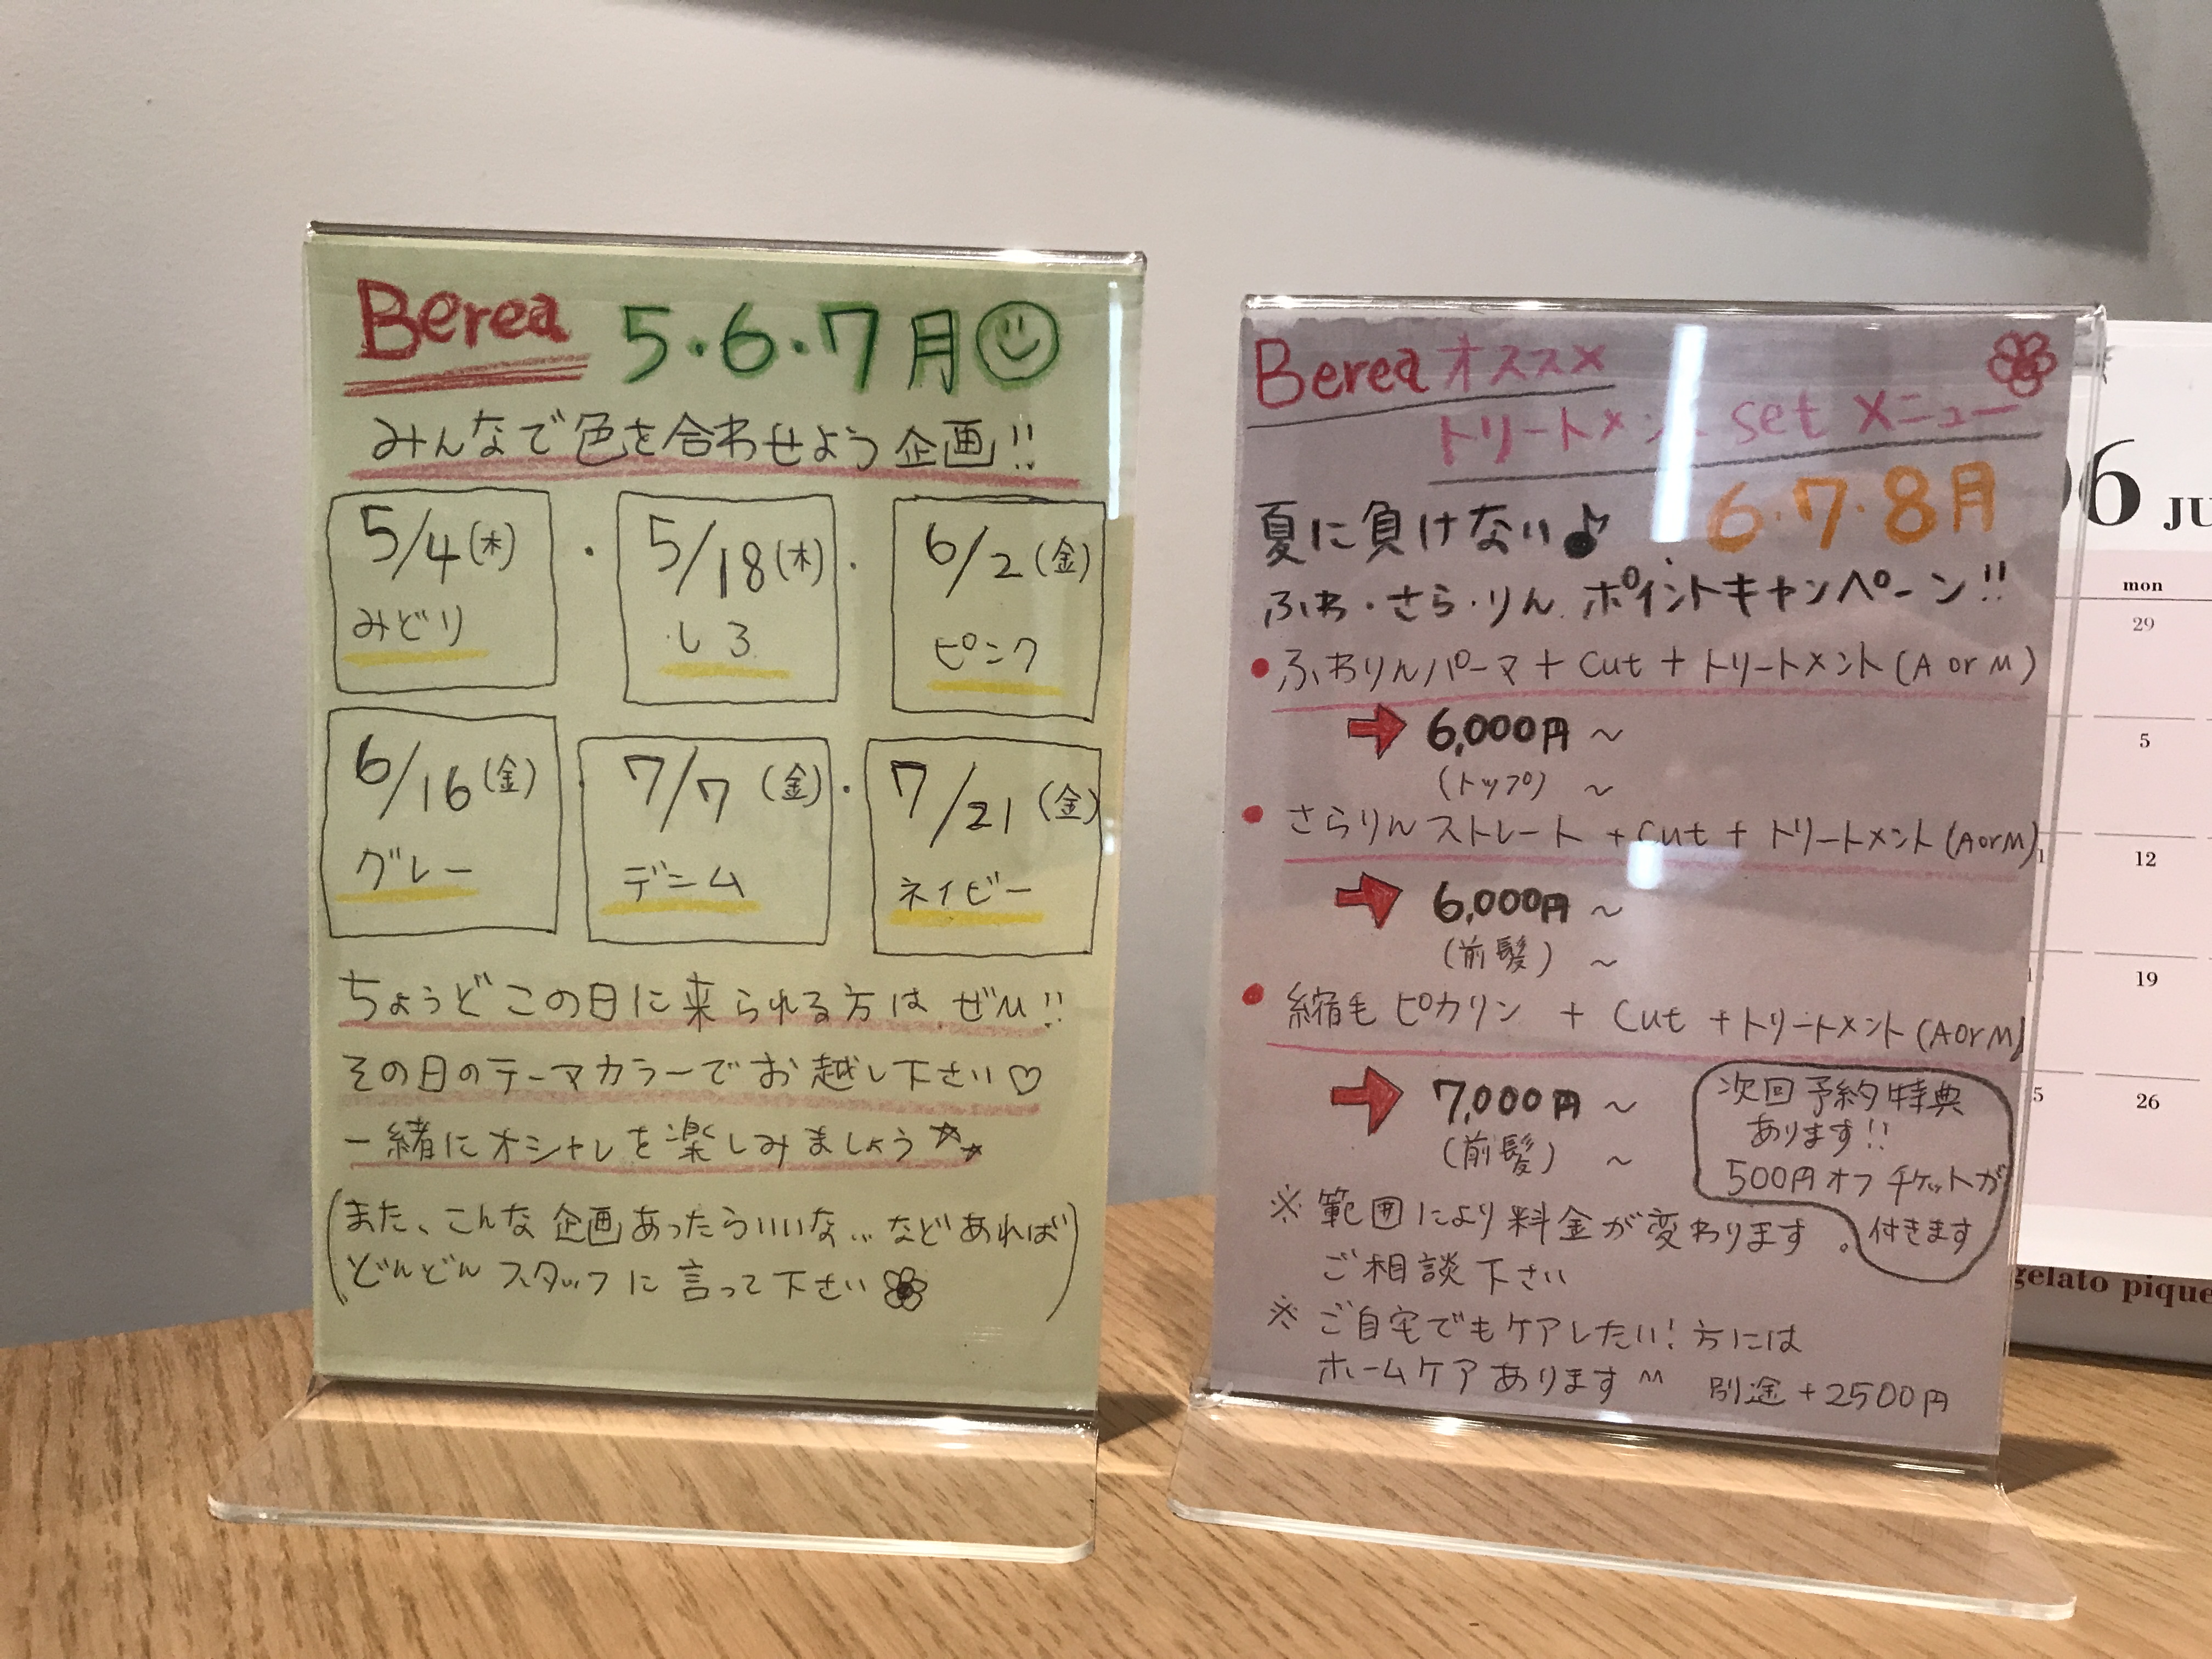 Berea 5・6・7月
みんなで色を合わせよう企画!!
5/4(木)
みどり
5/18(木)
しろ
6/2(金)
ピンク
6/16(金)
グレー
7/7(金)
デニム
7/21(金)
ネイビー
ちょうどこの日に来られる方はぜひ!!
その日のテーマカラーでお越し下さい♡
一緒にオシャレを楽しみましょう☆★
(また、こんな企画あったらいいな…などあれば
どんどんスタッフに言って下さい)
Bereaオススメ
トリートメントsetメニュー
6・7・8月
夏に負けない♪
ふわ・さら・りん ポイントキャンペーン!!
●ふわりんパーマ+Cut+トリートメント(A or M)
6,000円〜
(トップ)〜
●さらりんストレート+Cut+トリートメント(A or M)
6,000円〜
(前髪)〜
●縮毛ピカリン+Cut+トリートメント(A or M)
7,000円〜
(前髪)〜
次回予約特典
あります!!
500円オフチケットが
付きます
※範囲により料金が変わります。
ご相談下さい
※ご自宅でもケアしたい!方には
ホームケアあります^^ 別途+2500円
06 JU
mon
29
5
12
19
26
gelato pique